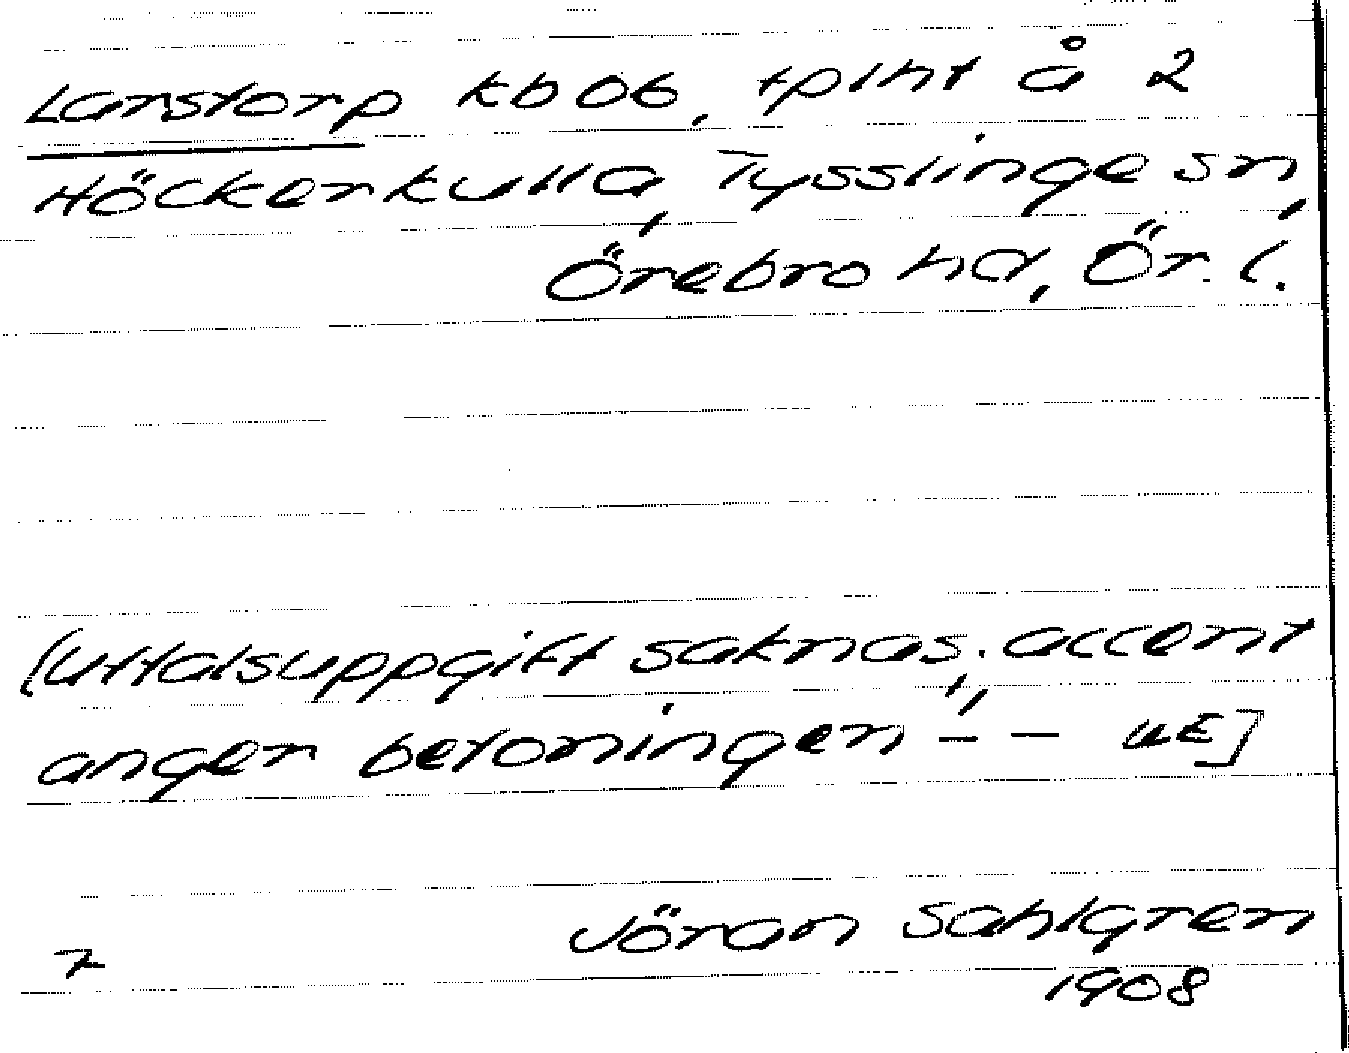 Larstorp kb06, tplht å 2
Höckerkulla, Tysslinge sn,
Örebro hd, Ör. l.
[Uttalsuppgift saknas; accent
anger betoningen ´– – UE]
Jöran Sahlgren
1908